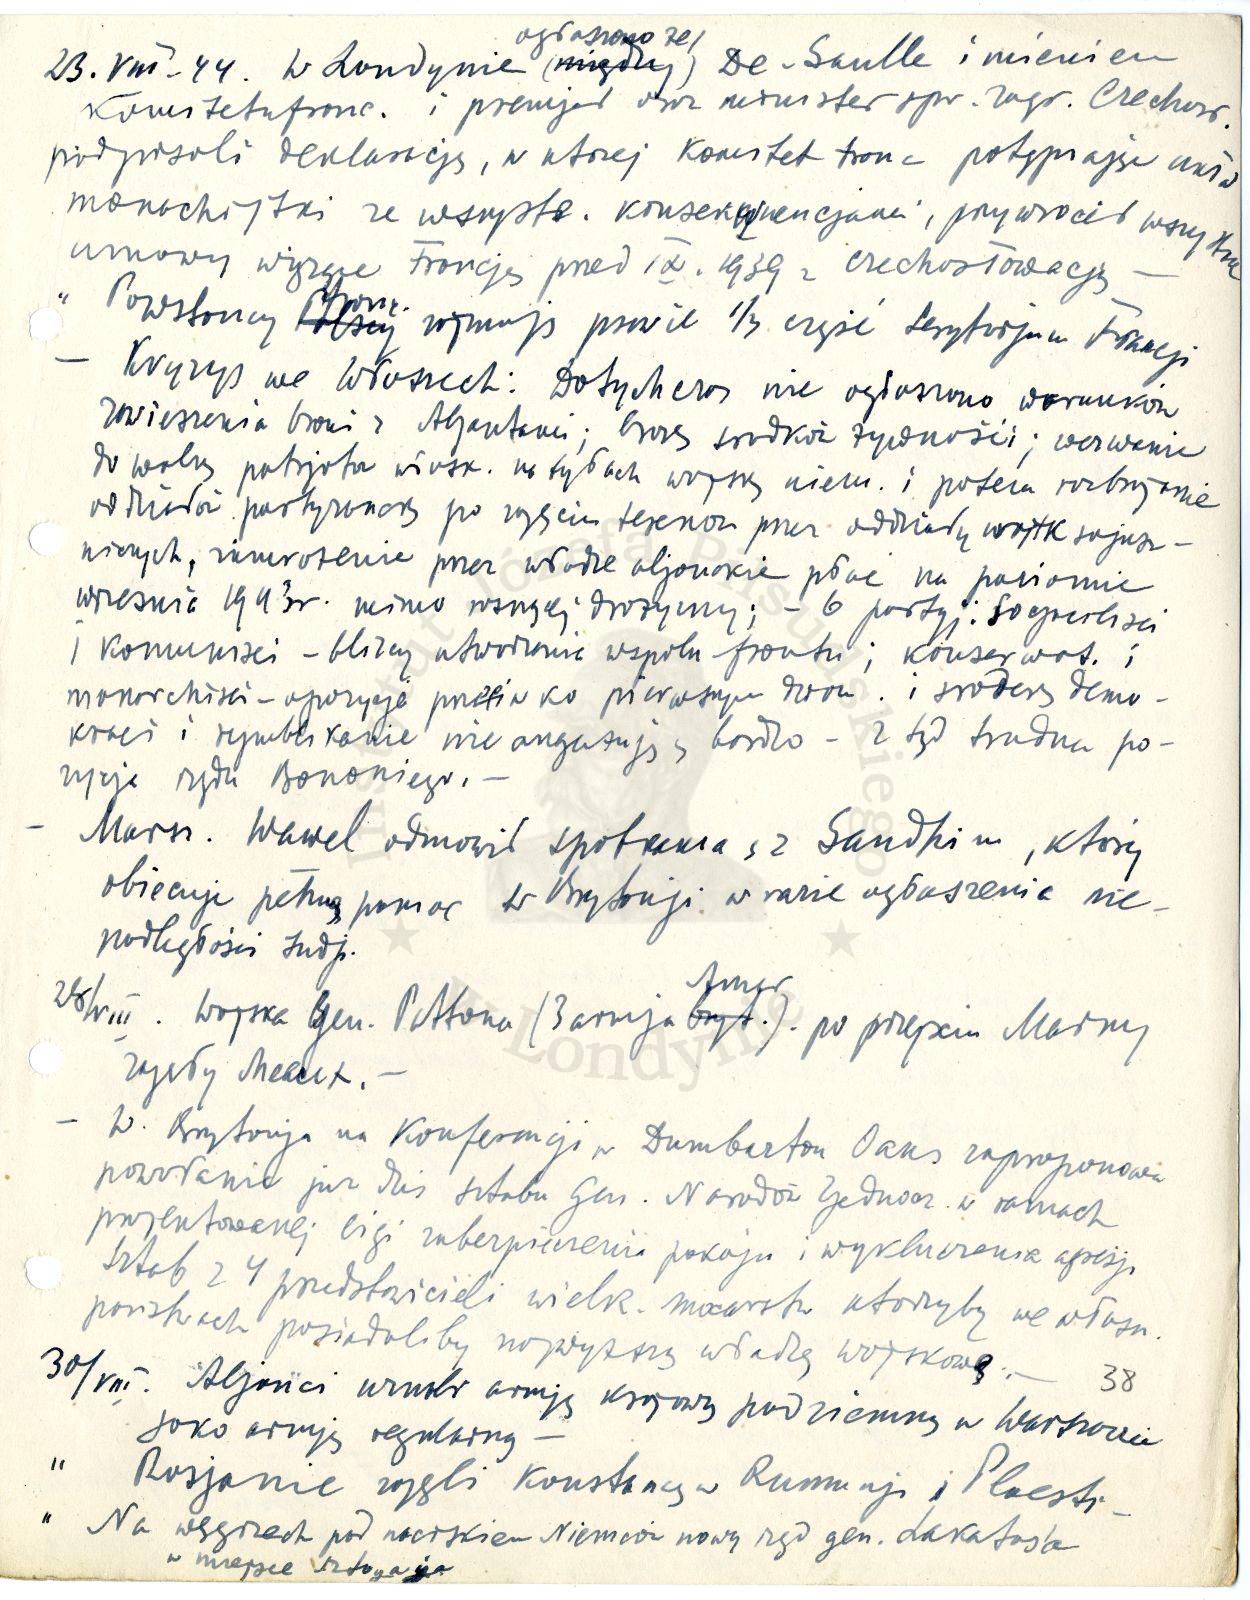 ogłaszono że/
23. VIII-44. W Londynie (między) De-Gaulle imieniem
Komitetu franc. i premjer oraz minister spr. zagr. Czechosł.
podpisali deklarację, w której Komitet franc potępiając układ
monachijski ze wszystk. konsekwencjami, przywrócił wszystkie
umowy wiążące Francję przed IX. 1939 z Czechosłowacją —
" Powstańcy Polscy franc. zajmują prawie 1/3 część terytorjum Francji
— Kryzys we Włoszech: Dotychczas nie ogłoszono warunków
zawieszenia broni z Aljantami; brak środków żywności; wezwanie
do walki patrjotów włosk. na tyłach wojsk niem. i potem rozbrojenie
oddziałów partyzanckich po zajęciu terenów przez oddziały wojsk sojusz-
niczych, zamrożenie przez władze aljanckie płac na poziomie
września 1943r. mimo rosnącej drożyzny; – 6 partyj: Socjaliści
i Komuniści – bliscy utworzenia wspóln frontu; konserwat. i
monarchiści – opozycja przeciwko pierwszym dwom. i środek demo-
kraci i republikanie nie angażują s bardzo – Stąd trudna po-
zycja rządu Bonomiego. —
— Marsz. Wawel odmówił spotkania s z Gandhim, który
obiecuje pełną pomoc W Brytanji w razie ogłoszenia nie-
podległości Indji.
28/VIII. Wojska Gen. Pattona (3 armja bryt. Amer.). po przejściu Marny
zajęły Meaux. —
— W. Brytanja na Konferencji w Dumbarton Oaks zaproponowała
powołanie już dziś sztabu Gen. Narodów Zjednocz. w ramach
projektowanej Ligi zabezpieczenia pokoju i wykluczenia agresji
Sztab z 4 przedstawicieli wielk. mocarstw którzyby we własn.
państwach posiadaliby najwyższą władzę wojskową. —
38
30/VIII. Aljanci uznali armję krajową podziemną w Warszawie
jako armję regularną —
" Rosjanie zajęli Konstancę w Rumunji i Ploesti —
" Na węgrzech pod naciskiem Niemców nowy rząd gen. Lakatosa
w miejsce Sztojaja
Instytut Józefa Piłsudskiego
w Londynie